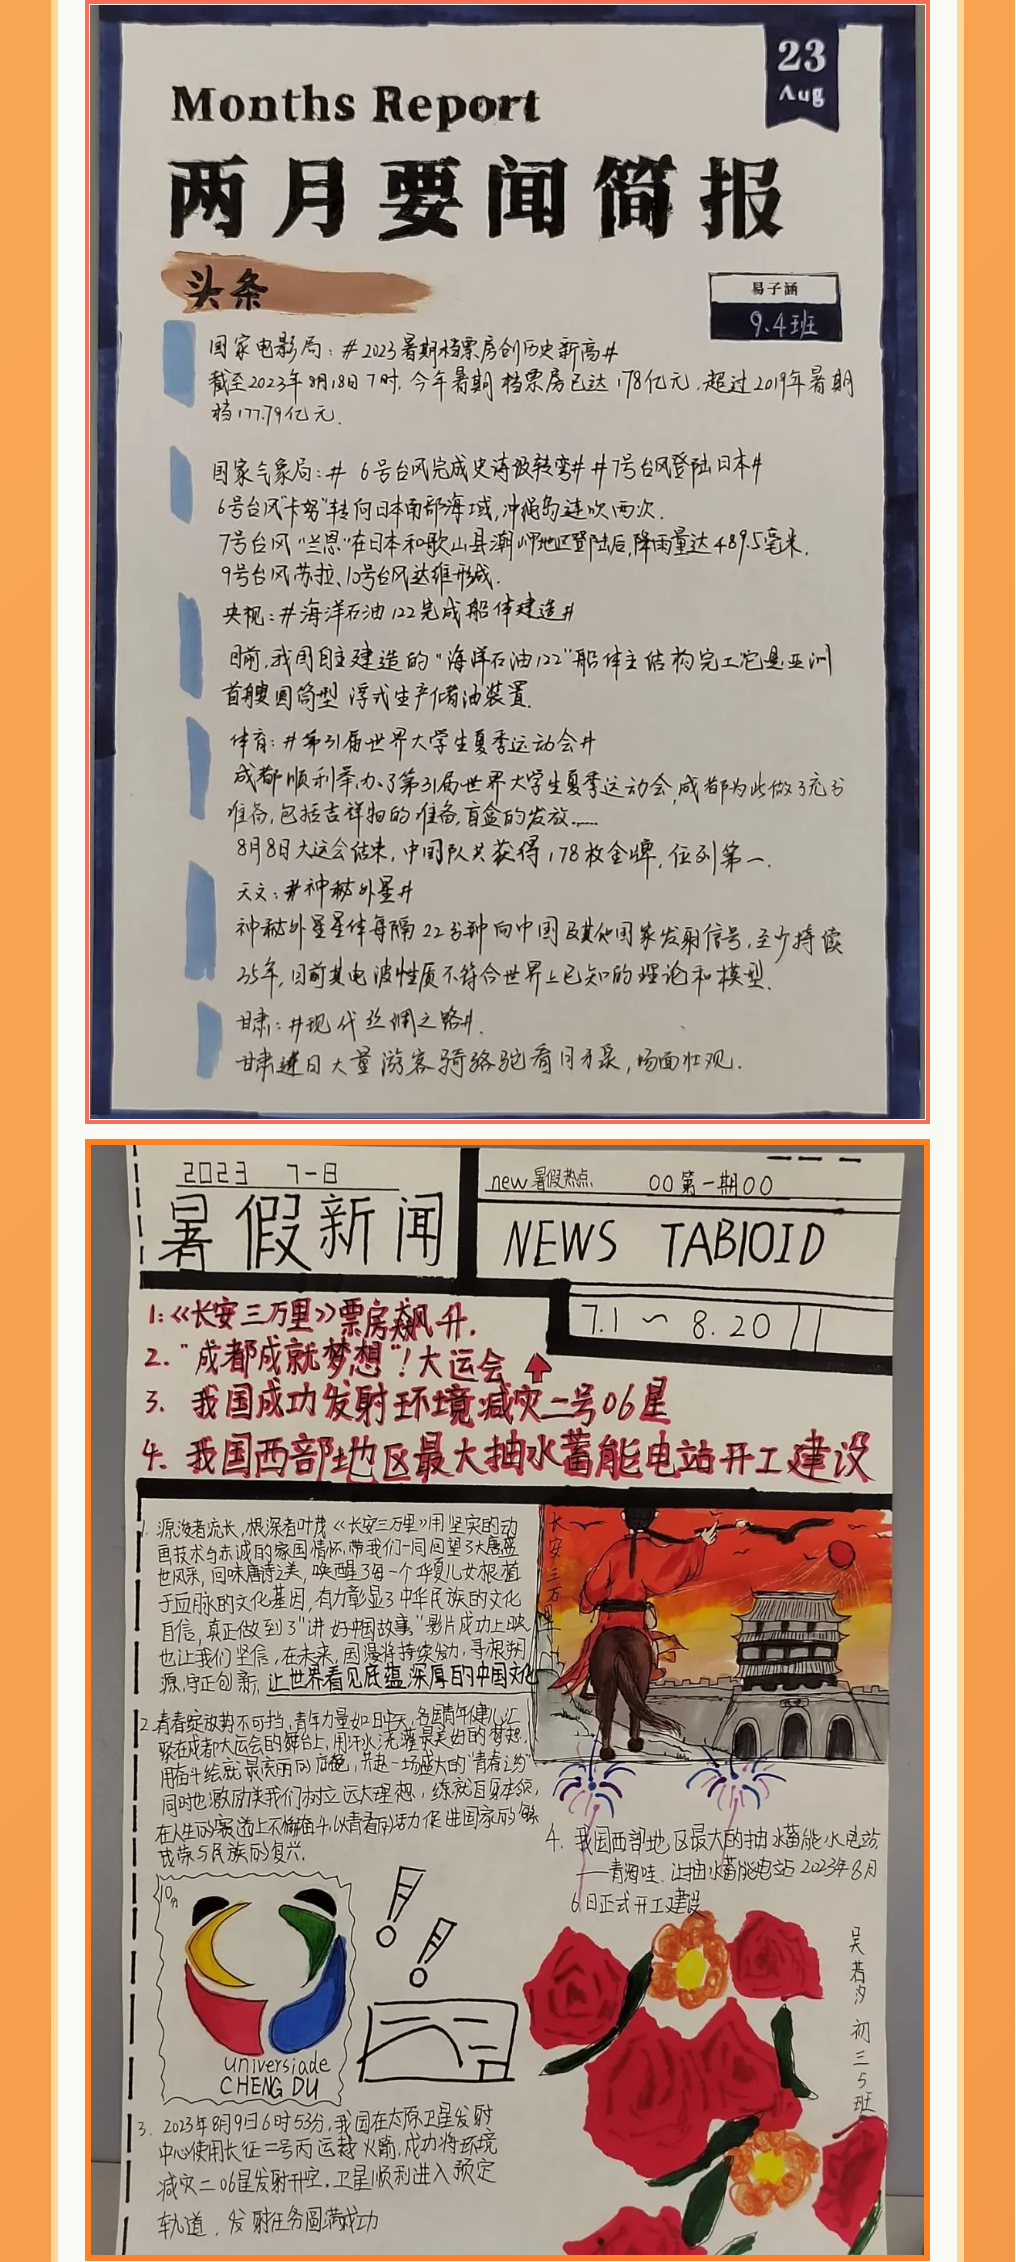 23
Aug
Months Report
两月要闻简报
头条
易子涵
9.4班
国家电影局：#2023暑期档票房创历史新高#
截至2023年8月18日7时，今年暑期档票房已达178亿元，超过2019年暑期
档177.79亿元。
国家气象局：# 6号台风完成史诗级转弯# #7号台风登陆日本#
6号台风“卡努”转向日本南部海域，冲绳岛连吹两次.
7号台风“兰恩”在日本和歌山县潮岬地区登陆后，降雨量达489.5毫米.
9号台风苏拉、10号台风达维形成.
央视：#海洋石油122完成船体建造#
日前，我国自主建造的“海洋石油122”船体主结构完工它是亚洲
首艘圆筒型 浮式生产储油装置.
体育：#第31届世界大学生夏季运动会#
成都顺利举办了第31届世界大学生夏季运动会，成都为此做了充分
准备，包括吉祥物的准备，盲盒的发放......
8月8日大运会结束，中国队共获得178枚金牌，位列第一.
天文：#神秘外星#
神秘外星星体每隔22分钟向中国及其他国家发射信号，至少持续
35年，目前其电波性质不符合世界上已知的理论和模型.
甘肃：#现代丝绸之路#.
甘肃进日大量游客骑骆驼看月牙泉，场面壮观.
2023 7-8
new暑假热点 00第一期00
暑假新闻
NEWS TABIOID
7.1 ~ 8.20
1:《长安三万里》票房飙升.
2."成都成就梦想"!大运会
3. 我国成功发射环境减灾二号06星
4. 我国西部地区最大抽水蓄能电站开工建设
1. 源浚者流长，根深者叶茂《长安三万里》用坚实的动
画技术与赤诚的家国情怀，带我们一同回望了大唐盛
世风采，回味唐诗之美，唤醒了每一个华夏儿女根植
于血脉的文化基因，有力彰显了中华民族的文化
自信，真正做到了"讲好中国故事."影片成功上映
也让我们坚信，在未来，国漫将持续发力，寻根溯
源，守正创新，让世界看见底蕴深厚的中国文化
长安三万里
2.青春绽放势不可挡，青年力量如日中天，各国青年健儿汇
聚在成都大运会的舞台上，用汗水浇灌最美好的梦想，
用奋斗绘就最亮丽的底色，共赴一场盛大的"青春之约"
同时也激励着我们树立远大理想，练就自身本领，
在人生的赛道上不懈奋斗，以青春的活力促进国家的
战荣与民族的复兴.
4. 我国西部地区最大的抽水蓄能水电站
——青海哇.让抽水蓄能电站2023年8月
6日正式开工建设
10分
universiade
CHENG DU
吴若汐 初三5班
3. 2023年8月9日6时53分，我国在太原卫星发射
中心使用长征二号丙运载火箭，成功将环境
减灾二06星发射升空.卫星顺利进入预定
轨道，发射任务圆满成功